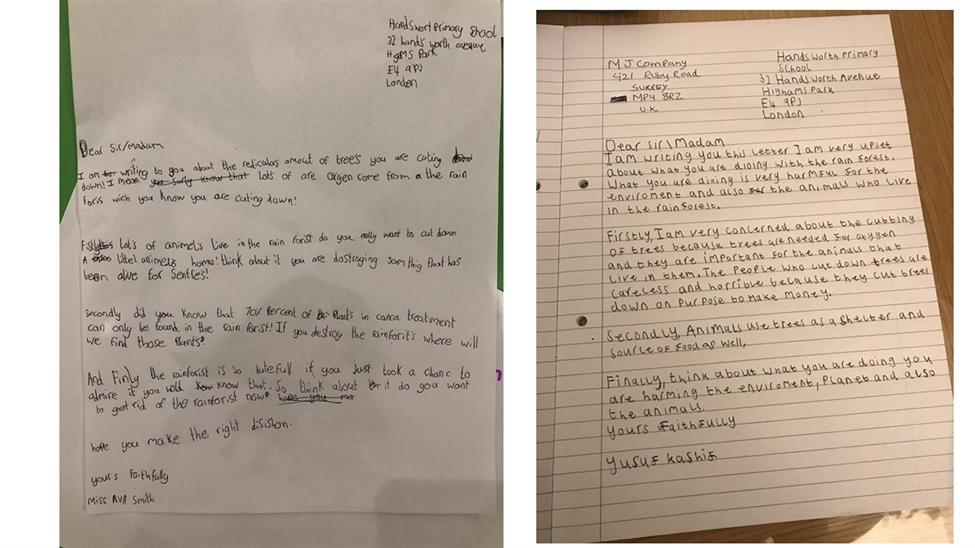 Handswort primary School
32 hands worth avenue
HigMS Park
E4 9PJ
London
Dear Sir/madam
I am writing to you about the rediculas amout of tree's you are cating
down! I mean you surly know that lots of are oxgen come from a the rain
foris wich you know you are cating down!
Lot's of animels live in the rain forist do you really want to cut down
A littel animels home! think about it you are dastroying somthing that has
been alive for Sentres!
Secondly did you know that 70% Percent of Plants in canca treatment
can only be found in the rain forist! If you destroy the rainforit's where will
we find those Plants?
And Finly the rainforist is so butefull if you Just took a chance to
admire it you wold know that. So think about it do you want
to get rid of the rainforist now?
hope you make the right disishon.
yours Faithfully
Miss AVA Smith
MJ Company
421 Ruby Road
SURREY
MP4 8RZ
U.K
Handsworth Primary
School
32 Handsworth Avenue
Highams Park
E4 9PJ
London
Dear Sir\Madam
I am writing you this letter I am very upset
about what you are dioing with the rain forest.
What you are dioing is very harmful for the
enviroment and also the animals who live
in the rainforest.
Firstly, I am very concerned about the cutting
of trees because trees are needed for oxygen
and they are important for the animals that
live in them. The People who cut down trees are
careless and horrible because they cut trees
down on Purpose to make money.
Secondly, Animals use trees as a shelter and
source of food as well.
Finally, think about what you are doing you
are harming the enviroment, Planet and also
the animals.
yours faithfully
Yusuf Kashif